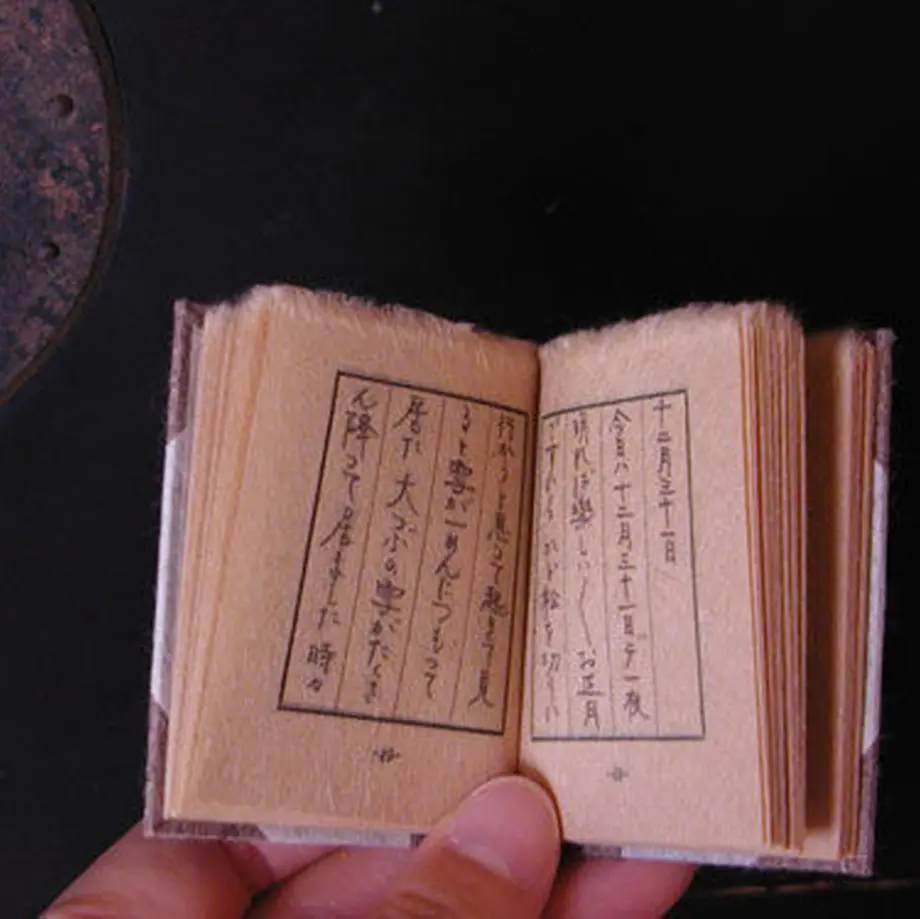 十二月三十一日
今日ハ十二月三十一日デ一夜
明れば樂しい〱お正月
ですから かど松を切りに
行かうと思つて起きて見
ると雪が一めんにつもつて
居た 大ぶの雪がたくさ
ん降つて居ました 時々